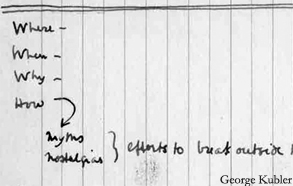 Where –
When –
Why –
How
myths
nostalgias } efforts to break outside
George Kubler